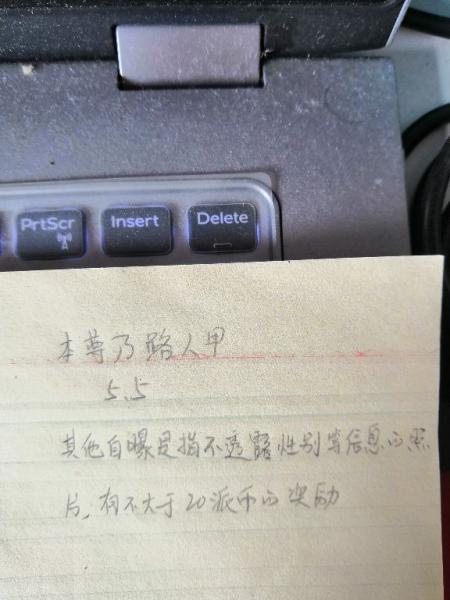 PrtScr
Insert
Delete
本尊乃路人甲
5.5
其他自曝是指不透露性别等信息的照
片,有不大于20派币的奖励